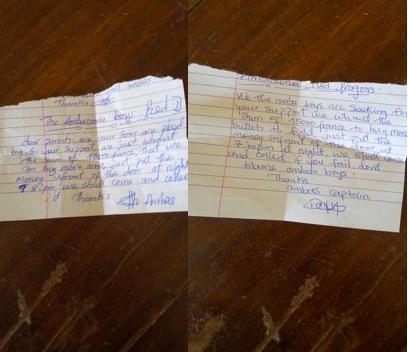 Thanks
The Ambazonia boys Red D
dear parents we our sons are pleading
for your support we just want
the sum of 15000 francs that we
can buy more and just put the
money infront of the door at night
7. 8. pm we shall come and collect
it Thanks Ambas
Red Dragons.
We the amba boys are seeking for
your support we whant the
Sum of 15000 france to buy more
bullets to fight just put the
money infront of the door at
7.00pm at night. we shall come
and collect if you fail dont
blame amba boys.
Thanks
ambas captain